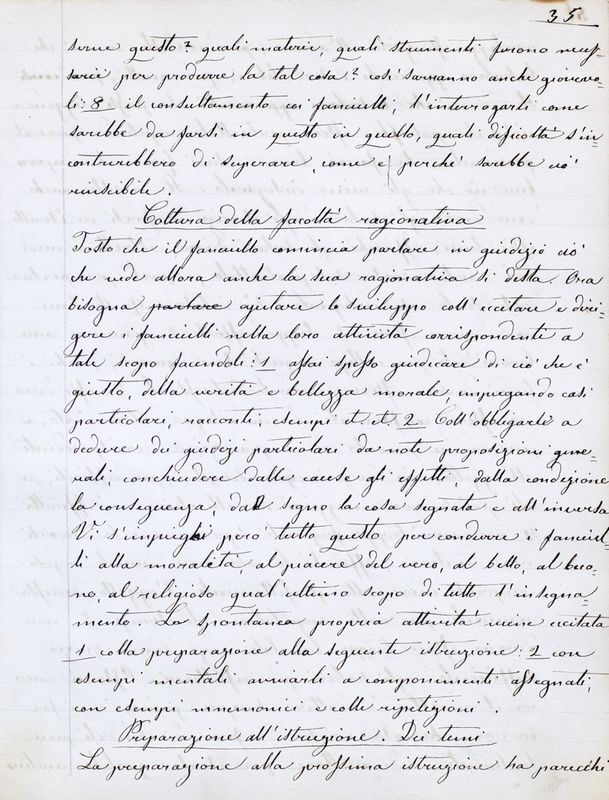 35.
serve questo? quali materie, quali strumenti furono neces-
sarii per produrre la tal cosa? così saranno anche giovevo-
li: 8 il consultamento coi fanciulli, l'interrogarli come
sarebbe da farsi in questo in quello, quali dificoltà s'in-
contrerebbero di superare, come e perché sarebbe ciò
riuscibile.
Coltura della facoltà ragionativa
Tosto che il fanciullo comincia parlare in giudizio ciò
che vede allora anche la sua ragionativa si desta. Ora
bisogna parlare ajutare lo sviluppo coll'eccitare e diri-
gere i fanciulli nella loro attività corrispondenti a
tale scopo facendoli: 1 assai spesso giudicare di ciò che è
giusto, della verità e bellezza morale, impiegando casi
particolari, racconti, esempi et. et. 2 Coll'obbligarli a
dedurre dei giudizi particolari da note proposizioni gene-
rali, conchiudere dalle cause gli effetti, dalla condizione
la conseguenza, dal segno la cosa segnata e all'inversa
Vi s'impieghi però tutto questo per condurre i fanciul-
li alla moralità, al piacere del vero, al bello, al buo-
no, al religioso qual'ultimo scopo di tutto l'insegna-
mento. La spontanea propria attività viene eccitata
1 colla preparazione alla seguente istruzione: 2 con
esempi mentali avviarli a componimenti assegnati,
con esempi mnemonici e colle ripetizioni.
Preparazione all'istruzione. Dei temi
La preparazione alla prossima istruzione ha parecchi